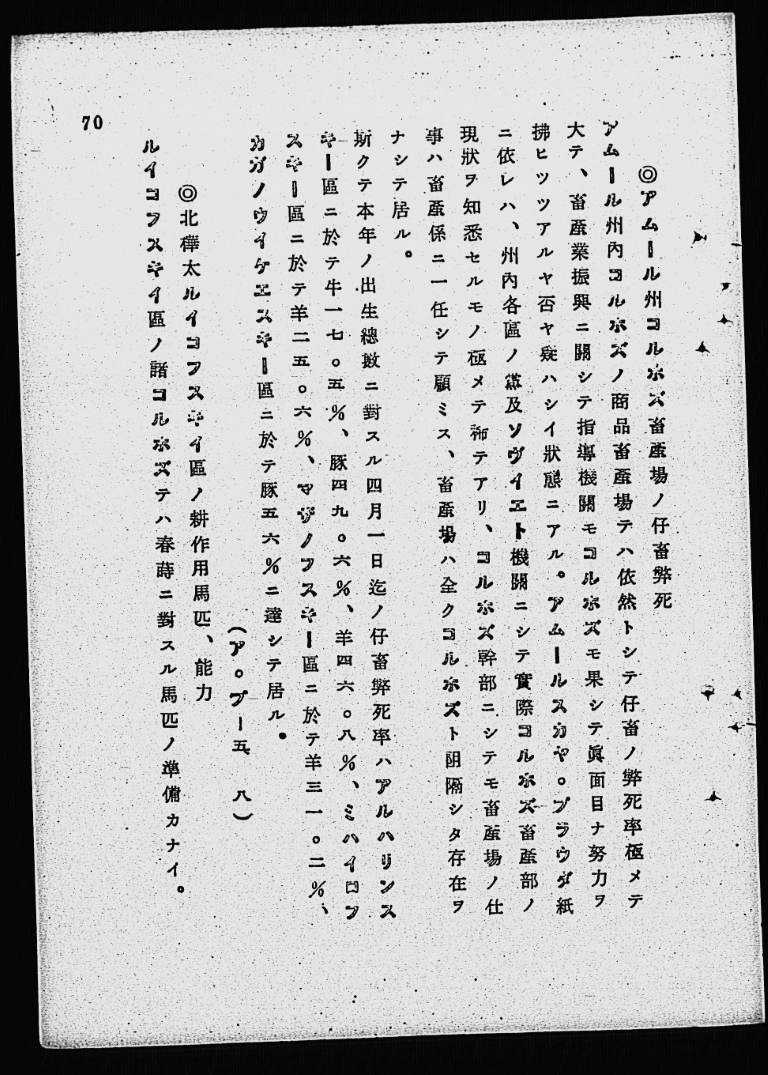 ◎アムール州コルホズ畜產場ノ仔畜弊死
アムール州內コルホズノ商品畜產場テハ依然トシテ仔畜ノ弊死率極メテ
大テ、畜產業振興ニ關シテ指導機關モコルホズモ果シテ眞面目ナ努力ヲ
拂ヒツツアルヤ否ヤ疑ハシイ狀態ニアル。アムールスカヤ。プラウダ紙
ニ依レハ、州內各區ノ黨及ソヴイエト機關ニシテ實際コルホズ畜產部ノ
現狀ヲ知悉セルモノ極メテ稀テアリ、コルホズ幹部ニシテモ畜產場ノ仕
事ハ畜產係ニ一任シテ顧ミス、畜產場ハ全クコルホズト阻隔シタ存在ヲ
ナシテ居ル。
斯クテ本年ノ出生總數ニ對スル四月一日迄ノ仔畜弊死率ハアルハリンス
キー區ニ於テ牛一七。五％、豚四九。六％、羊四六。八％、ミハイロフ
スキー區ニ於テ羊二五。六％、マザノフスキー區ニ於テ羊三一。二％、
カガノウイケエスキー區ニ於テ豚五六％ニ達シテ居ル。
（ア。プー五、八）
◎北樺太ルイコフスキイ區ノ耕作用馬匹、能力
ルイコフスキイ區ノ諸コルホズテハ春蒔ニ對スル馬匹ノ準備カナイ。
70